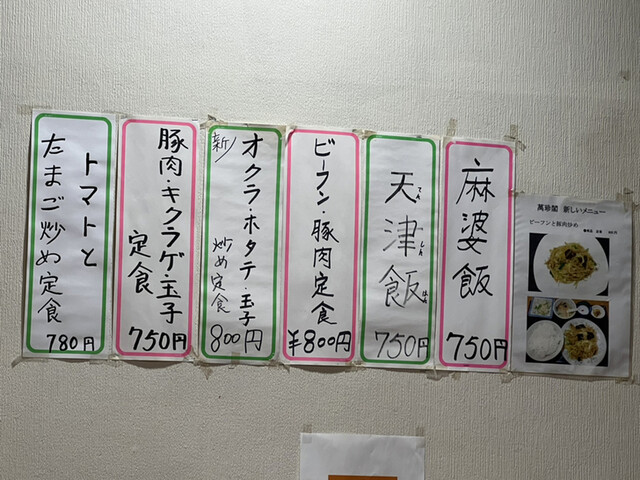 トマトと
たまご炒め定食
780円
豚肉・キクラゲ・玉子
定食
750円
新
オクラ・ホタテ・玉子
炒め定食
800円
ビーフン・豚肉定食
¥800円
天津飯
てんしんはん
750円
麻婆飯
750円
萬珍閣 新しいメニュー
ビーフンと豚肉炒め